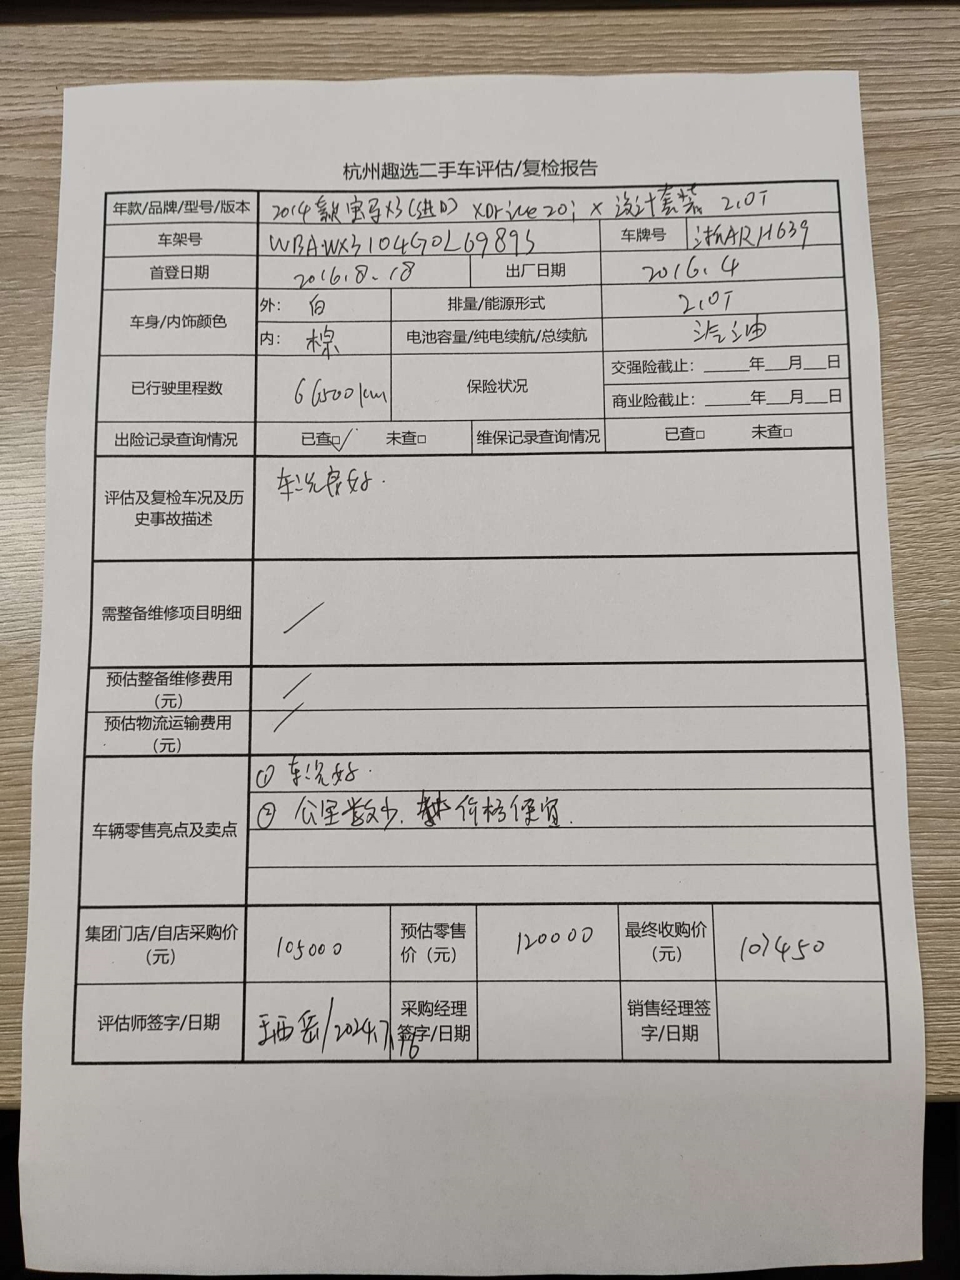 杭州趣选二手车评估/复检报告
年款/品牌/型号/版本 2014款宝马X3(进口) xDrive20i X设计套装 2.0T
车架号 WBAWX3104G0L69895 车牌号 浙ARH639
首登日期 2016.8.18 出厂日期 2016.4
车身/内饰颜色 外: 白 排量/能源形式 2.0T
内: 棕 电池容量/纯电续航/总续航 汽油
已行驶里程数 66500km 保险状况 交强险截止: ______年___月___日
商业险截止: ______年___月___日
出险记录查询情况 已查□✓ 未查□ 维保记录查询情况 已查□ 未查□
评估及复检车况及历 车况良好.
史事故描述
需整备维修项目明细 /
预估整备维修费用 /
(元)
预估物流运输费用 /
(元)
车辆零售亮点及卖点 ① 车况好.
② 公里数少. 价格便宜.
集团门店/自店采购价 105000 预估零售 120000 最终收购价 107450
(元) 价(元) (元)
评估师签字/日期 /2024.7.16 采购经理 销售经理签
签字/日期 字/日期